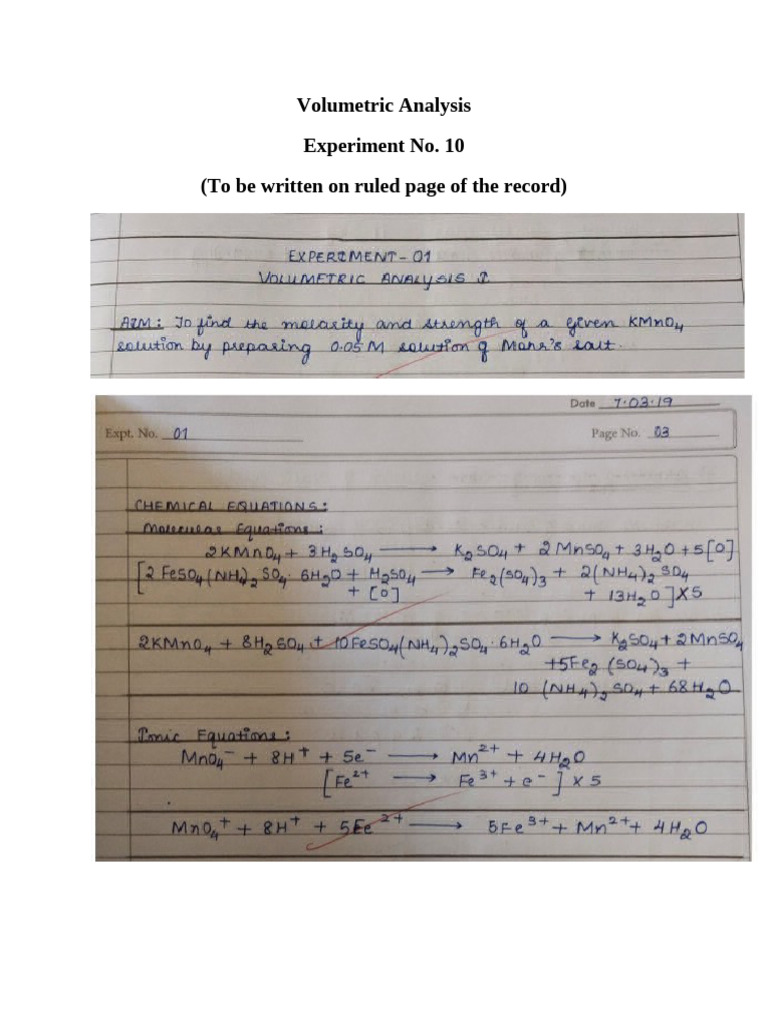 Volumetric Analysis
Experiment No. 10
(To be written on ruled page of the record)
EXPERIMENT-01
VOLUMETRIC ANALYSIS
AIM: To find the molarity and strength of a given KMnO₄
solution by preparing 0.05M solution of Mohr's salt.
Date 7.03.19
Expt. No. 01 Page No. 03
CHEMICAL EQUATIONS:
Molecular Equations:
2KMnO₄ + 3H₂SO₄ → K₂SO₄ + 2MnSO₄ + 3H₂O + 5[O]
[2FeSO₄(NH₄)₂SO₄·6H₂O + H₂SO₄ → Fe₂(SO₄)₃ + 2(NH₄)₂SO₄
+ [O] + 13H₂O]X5
2KMnO₄ + 8H₂SO₄ + 10FeSO₄(NH₄)₂SO₄·6H₂O → K₂SO₄ + 2MnSO₄
+5Fe₂(SO₄)₃ +
10(NH₄)₂SO₄ + 68H₂O
Ionic Equations:
MnO₄⁻ + 8H⁺ + 5e⁻ → Mn²⁺ + 4H₂O
[Fe²⁺ → Fe³⁺ + e⁻] X5
MnO₄⁺ + 8H⁺ + 5Fe²⁺ → 5Fe³⁺ + Mn²⁺ + 4H₂O